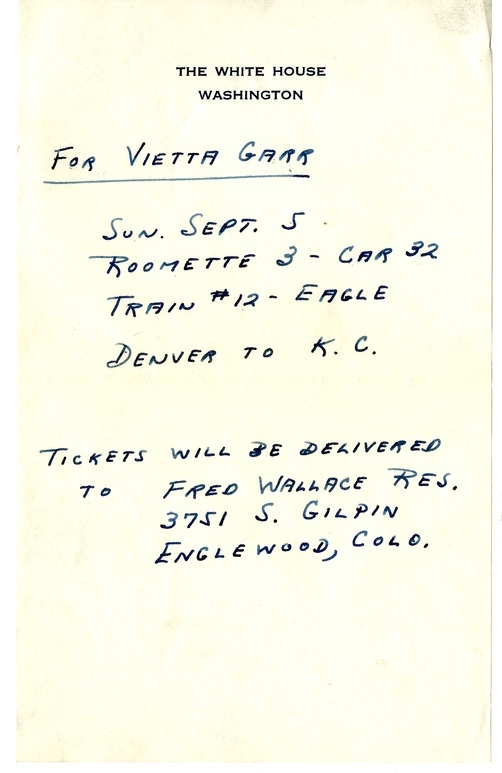 THE WHITE HOUSE
WASHINGTON
FOR VIETTA GARR
SUN. SEPT. 5
ROOMETTE 3 - CAR 32
TRAIN #12 - EAGLE
DENVER TO K. C.
TICKETS WILL BE DELIVERED
TO FRED WALLACE RES.
3751 S. GILPIN
ENGLEWOOD, COLO.